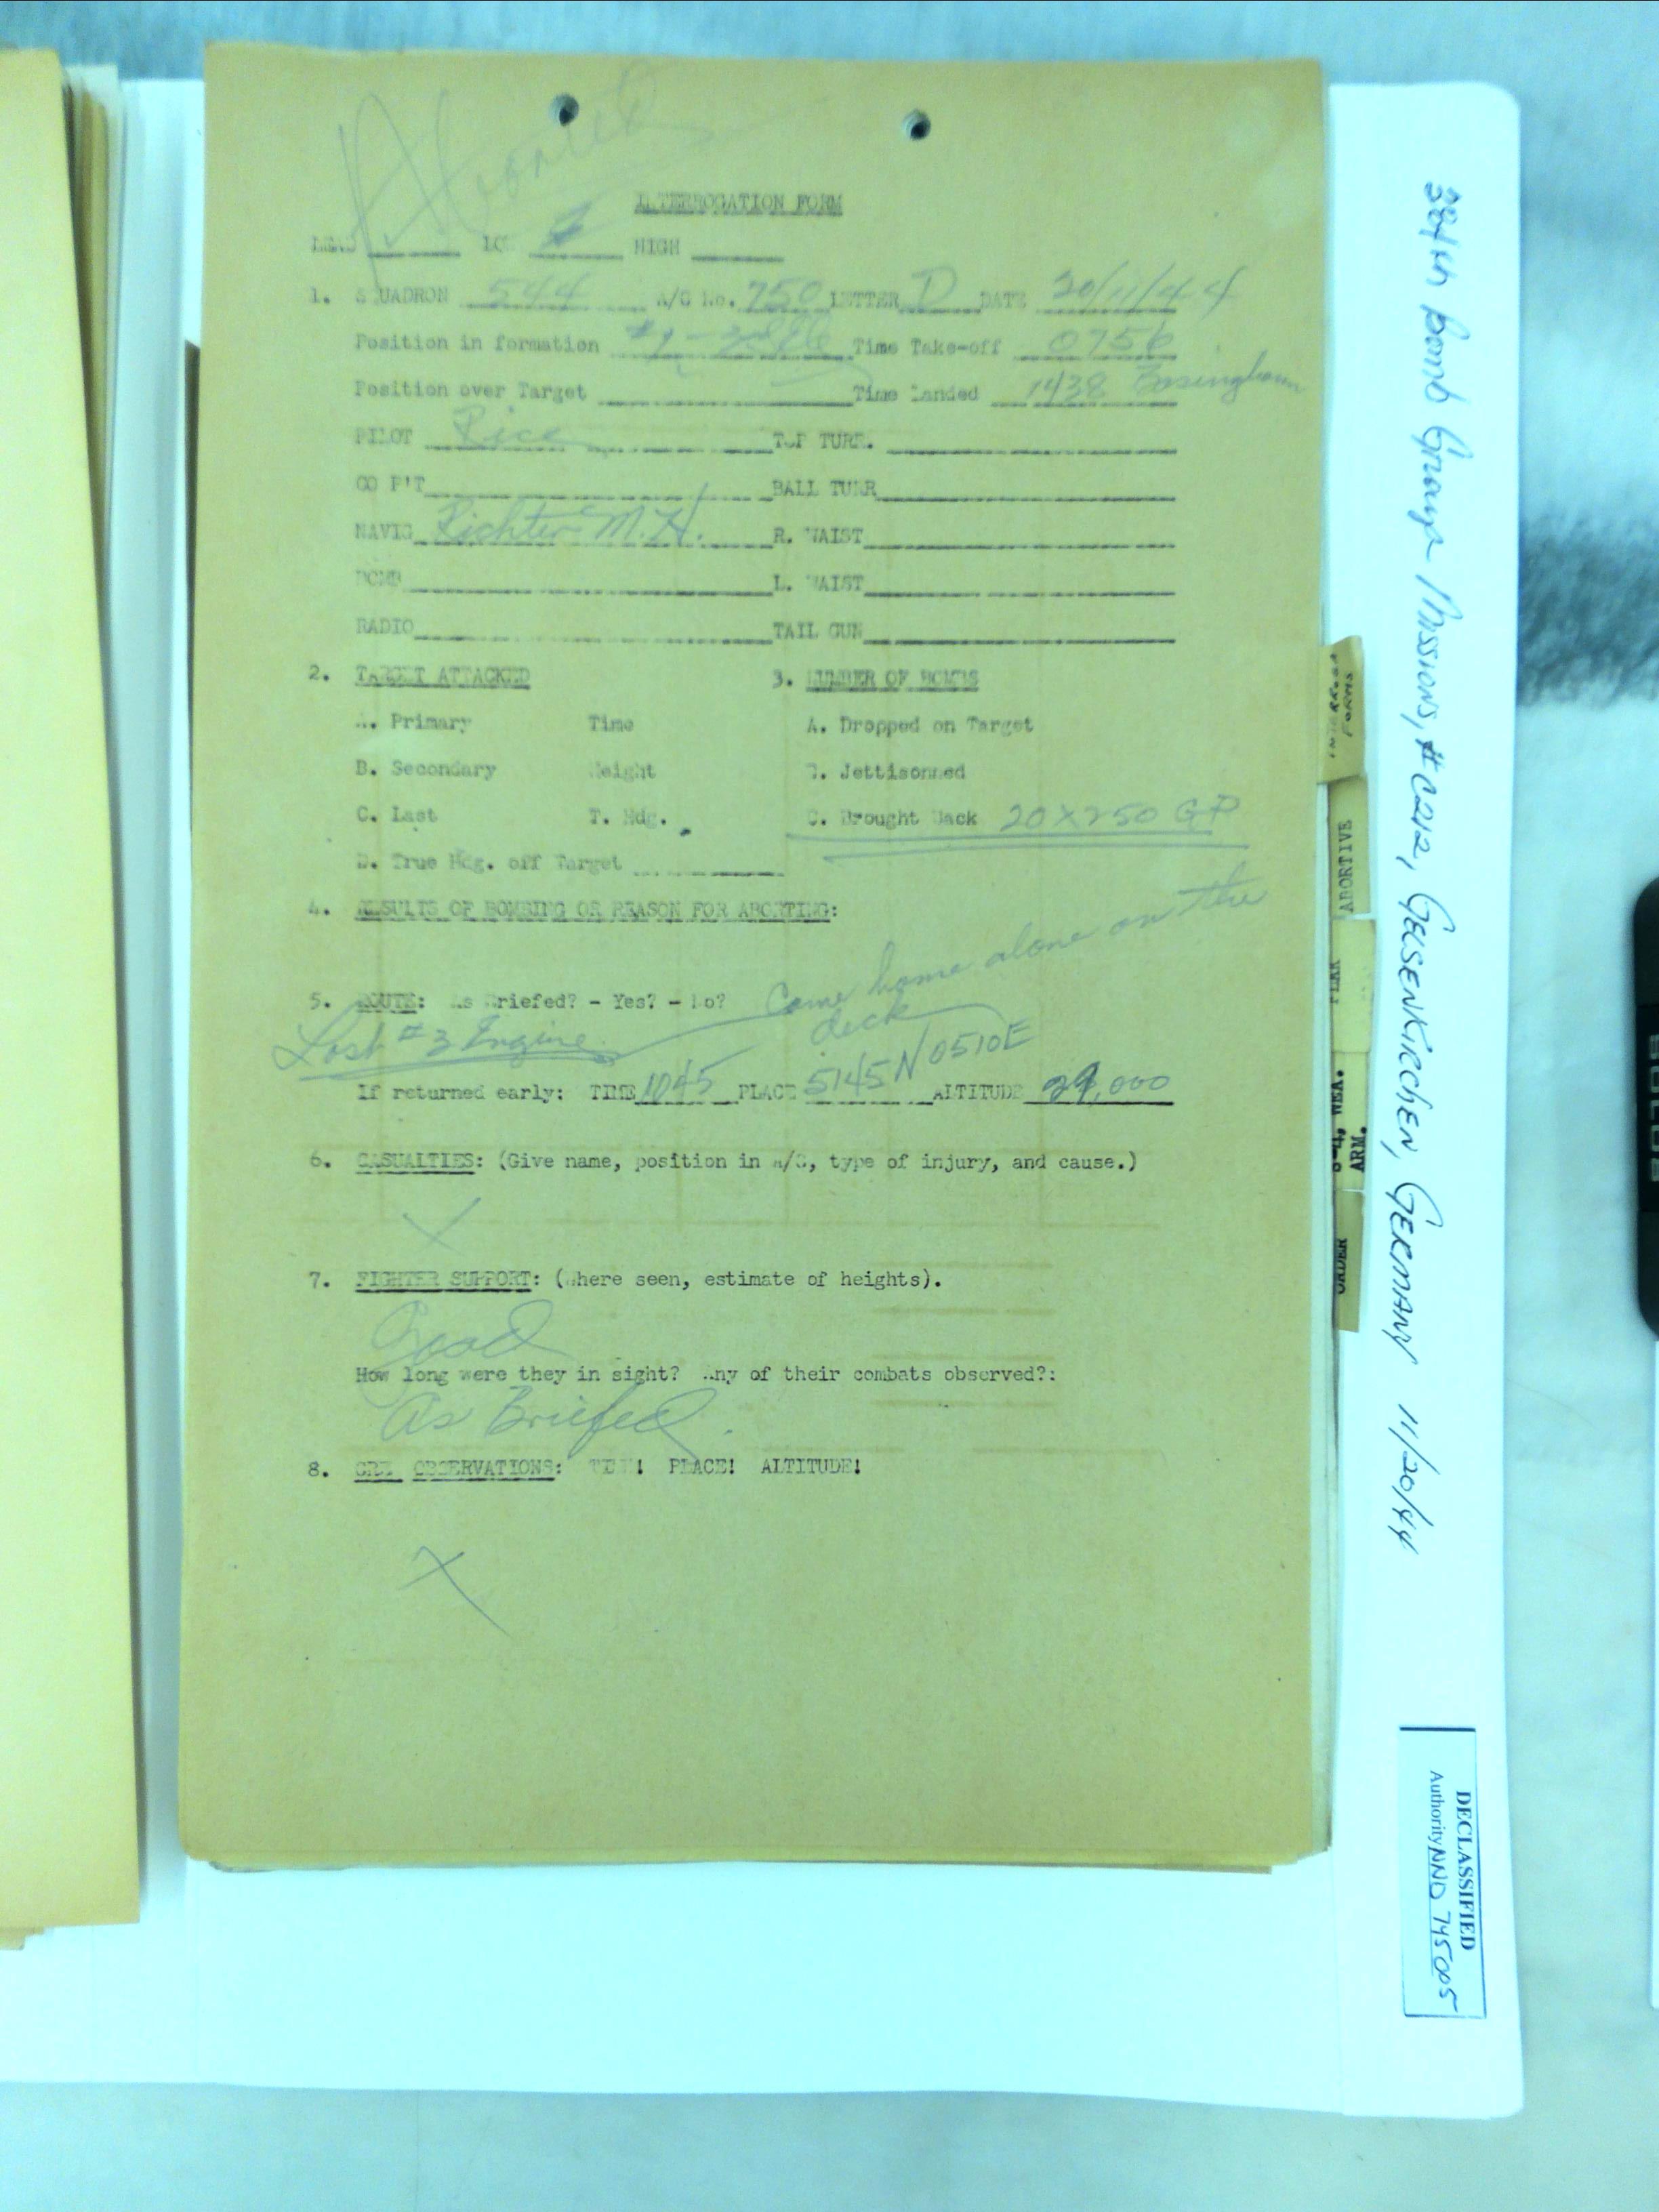 Aborted
INTERROGATION FORM
LEAD LOW HIGH
1. SQUADRON 544 A/C No. 750 LETTER D DATE 20/11/44
Position in formation Time Take-off 0756
Position over Target Time Landed 1438 Bassingbourn
PILOT Rice TOP TURR.
CO P'T BALL TURR
NAVIG Richter M.H. R. WAIST
BOMB L. WAIST
RADIO TAIL GUN
2. TARGET ATTACKED 3. NUMBER OF BOMBS
A. Primary Time A. Dropped on Target
B. Secondary Height B. Jettisonned
C. Last T. Hdg. C. Brought Back 20X250 GP
D. True Hdg. off Target
4. RESULTS OF BOMBING OR REASON FOR ABORTING:
5. ROUTE: As Briefed? - Yes? - No? Came home alone on the
deck
Lost #3 Engine
If returned early: TIME 1045 PLACE 5145N 0510E ALTITUDE 29,000
6. CASUALTIES: (Give name, position in A/C, type of injury, and cause.)
X
7. FIGHTER SUPPORT: (Where seen, estimate of heights).
Good
How long were they in sight? Any of their combats observed?:
As Briefed.
8. OBSERVATIONS: PLACE! ALTITUDE!
X
INTERROGA
FORMS
ABORTIVE
FLAK
S-4, WEA.
ARM.
ORDER
384th Bomb Group Missions, #C212, GELSENKIRCHEN, GERMANY 11/20/44
DECLASSIFIED
Authority NND 745005